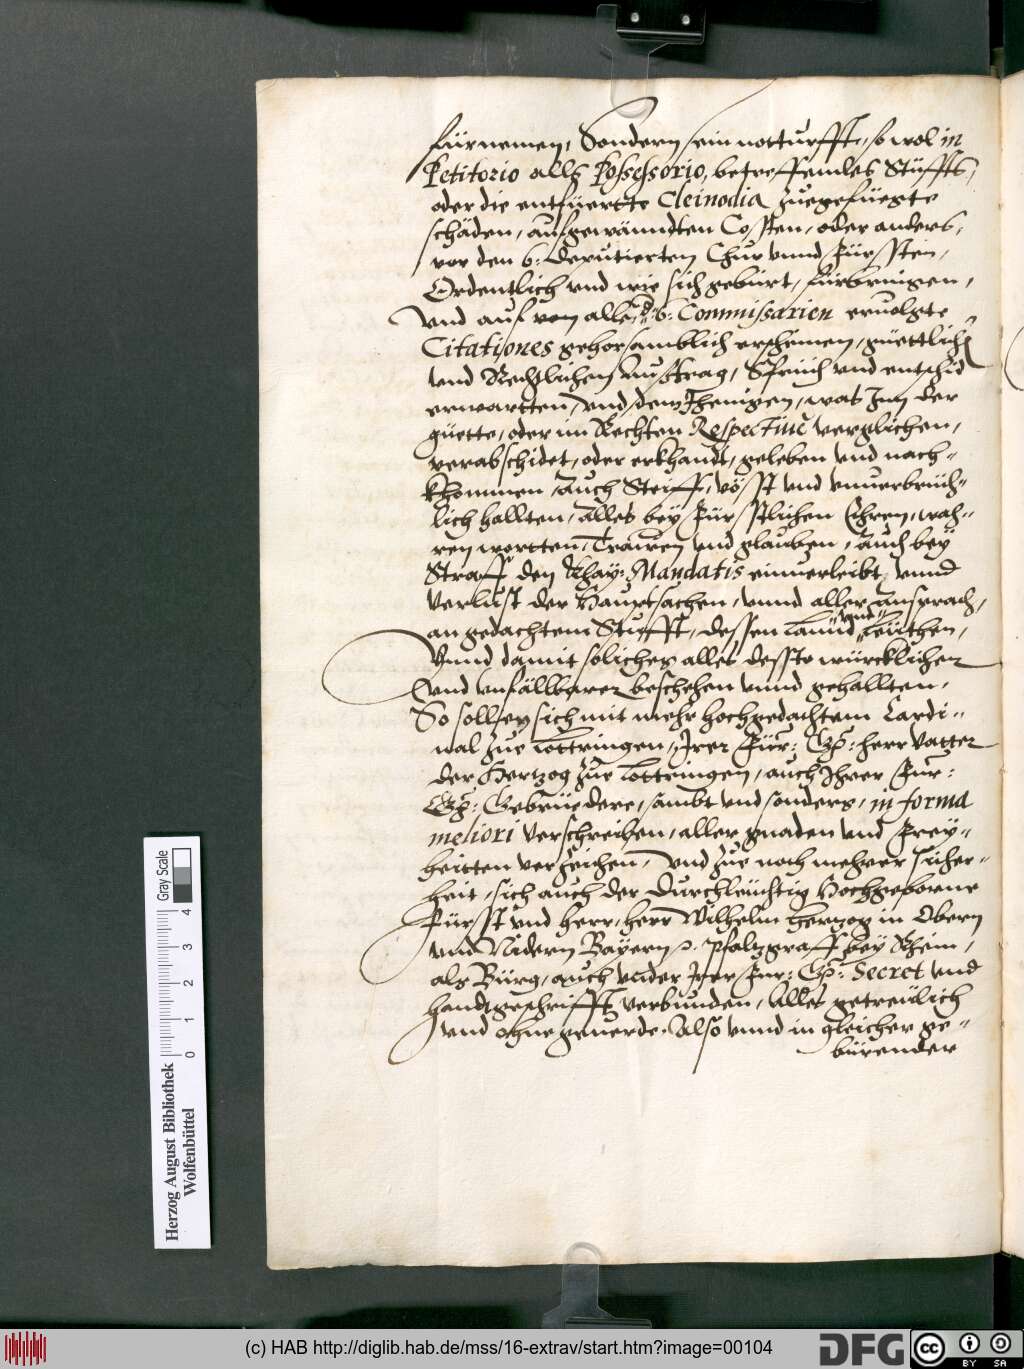 fürnemen, Sondern sein notturfft, so wol in
Petitorio alls Possessorio, betreffendes Stüffts,
oder die entfüertte Cleinodia zuegefüegte
schäden, aufgewänndten Costen, oder anders,
vor den 6: deputierten Chur vnnd Fürsten,
Ordentlich vnd wie sich gebürt, fürbringen,
vnd auf von allen 6: Commissarien ervolgte
Citationes gehorsamblich erscheinen, güettlichen
vnd Rechtlichen Austrag, Spruch vnd entschid
erwartten, vnd dem Jhenigen, was Inn der
güette, oder im Rechten Respectiue verglichen,
verabschidet, oder erkhandt, geleben vnd nach-
khommen, Auch Steiff, vösst vnd vnuerbrüch-
lich hallten, Alles bey Fürstlichen Ehren, wah-
ren wortten, Trauen vnd glauben, Auch bey
Straff den Khay: Mandatis einuerleibt, vnnd
Verlust der Hauptsachen, vnnd aller Ansprach,
an gedachtem Stüfft, dessen Lannd vnd Leüthen,
Vnnd damit soliches alles desto würcklicher
vnd vnfällbarer beschehen vnnd gehallten,
So soll sey sich mit mehr hochgedachtem Cardi-
nal zue Lottringen, Irer Für: Gn: herr Vatter
der Hertzog zue Lottringen, auch Ihrer Für:
Gn: Gebrüedere, sambt vnd sonders, in forma
meliori Verschreiben, aller gnaden vnd Frey-
heitten verzeichen, vnd zue noch mehrer sicher-
heit, sich auch der Durchleüchtig Hochgeborne
Fürst vnd herr, herr Wilhelm Hertzog in Obern
vnd Nidern Bayern, Pfaltzgraff bey Rhein,
als Bürg, auch vnder Irer Fur: Gn: Secret vnd
handtgeschrifft verbunden, Alles getreülich
vnd ohne geuerde. Also vnnd in gleicher ge-
bürender
Herzog August Bibliothek
Wolfenbüttel
0 1 2 3 4
Gray Scale
(c) HAB http://diglib.hab.de/mss/16-extrav/start.htm?image=00104
DFG
cc
BY SA